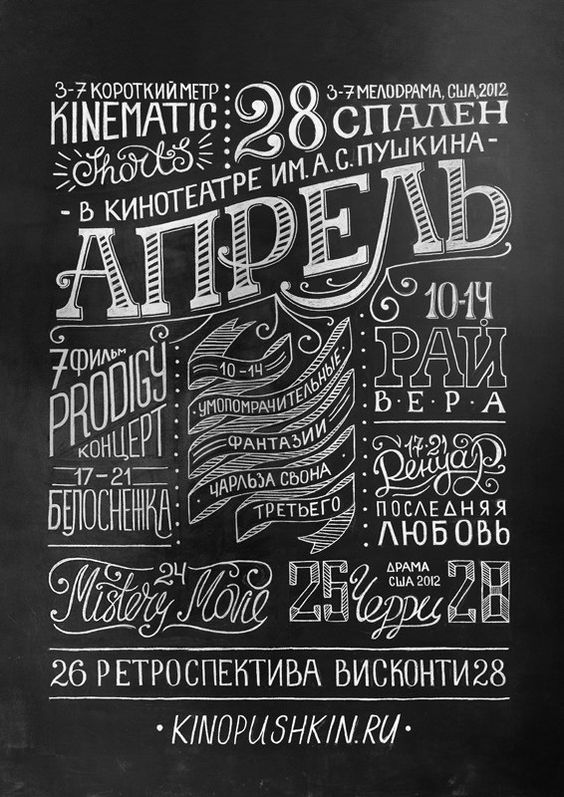 3-7 КОРОТКИЙ МЕТР
KINEMATIC
Shorts
28
3-7 МЕЛОДРАМА, США, 2012
СПАЛЕН
- В КИНОТЕАТРЕ ИМ. А. С. ПУШКИНА -
АПРЕЛЬ
7 ФИЛЬМ
PRODIGY
КОНЦЕРТ
17-21
БЕЛОСНЕЖКА
10-14
УМОПОМРАЧИТЕЛЬНЫЕ
ФАНТАЗИИ
ЧАРЛЬЗА СВОНА
ТРЕТЬЕГО
10-14
РАЙ
В·Е·Р·А
17-21
Ренуар
ПОСЛЕДНЯЯ
ЛЮБОВЬ
24
Mistery Movie
25
ДРАМА
США 2012
Черри
28
26 РЕТРОСПЕКТИВА ВИСКОНТИ 28
• KINOPUSHKIN.RU •